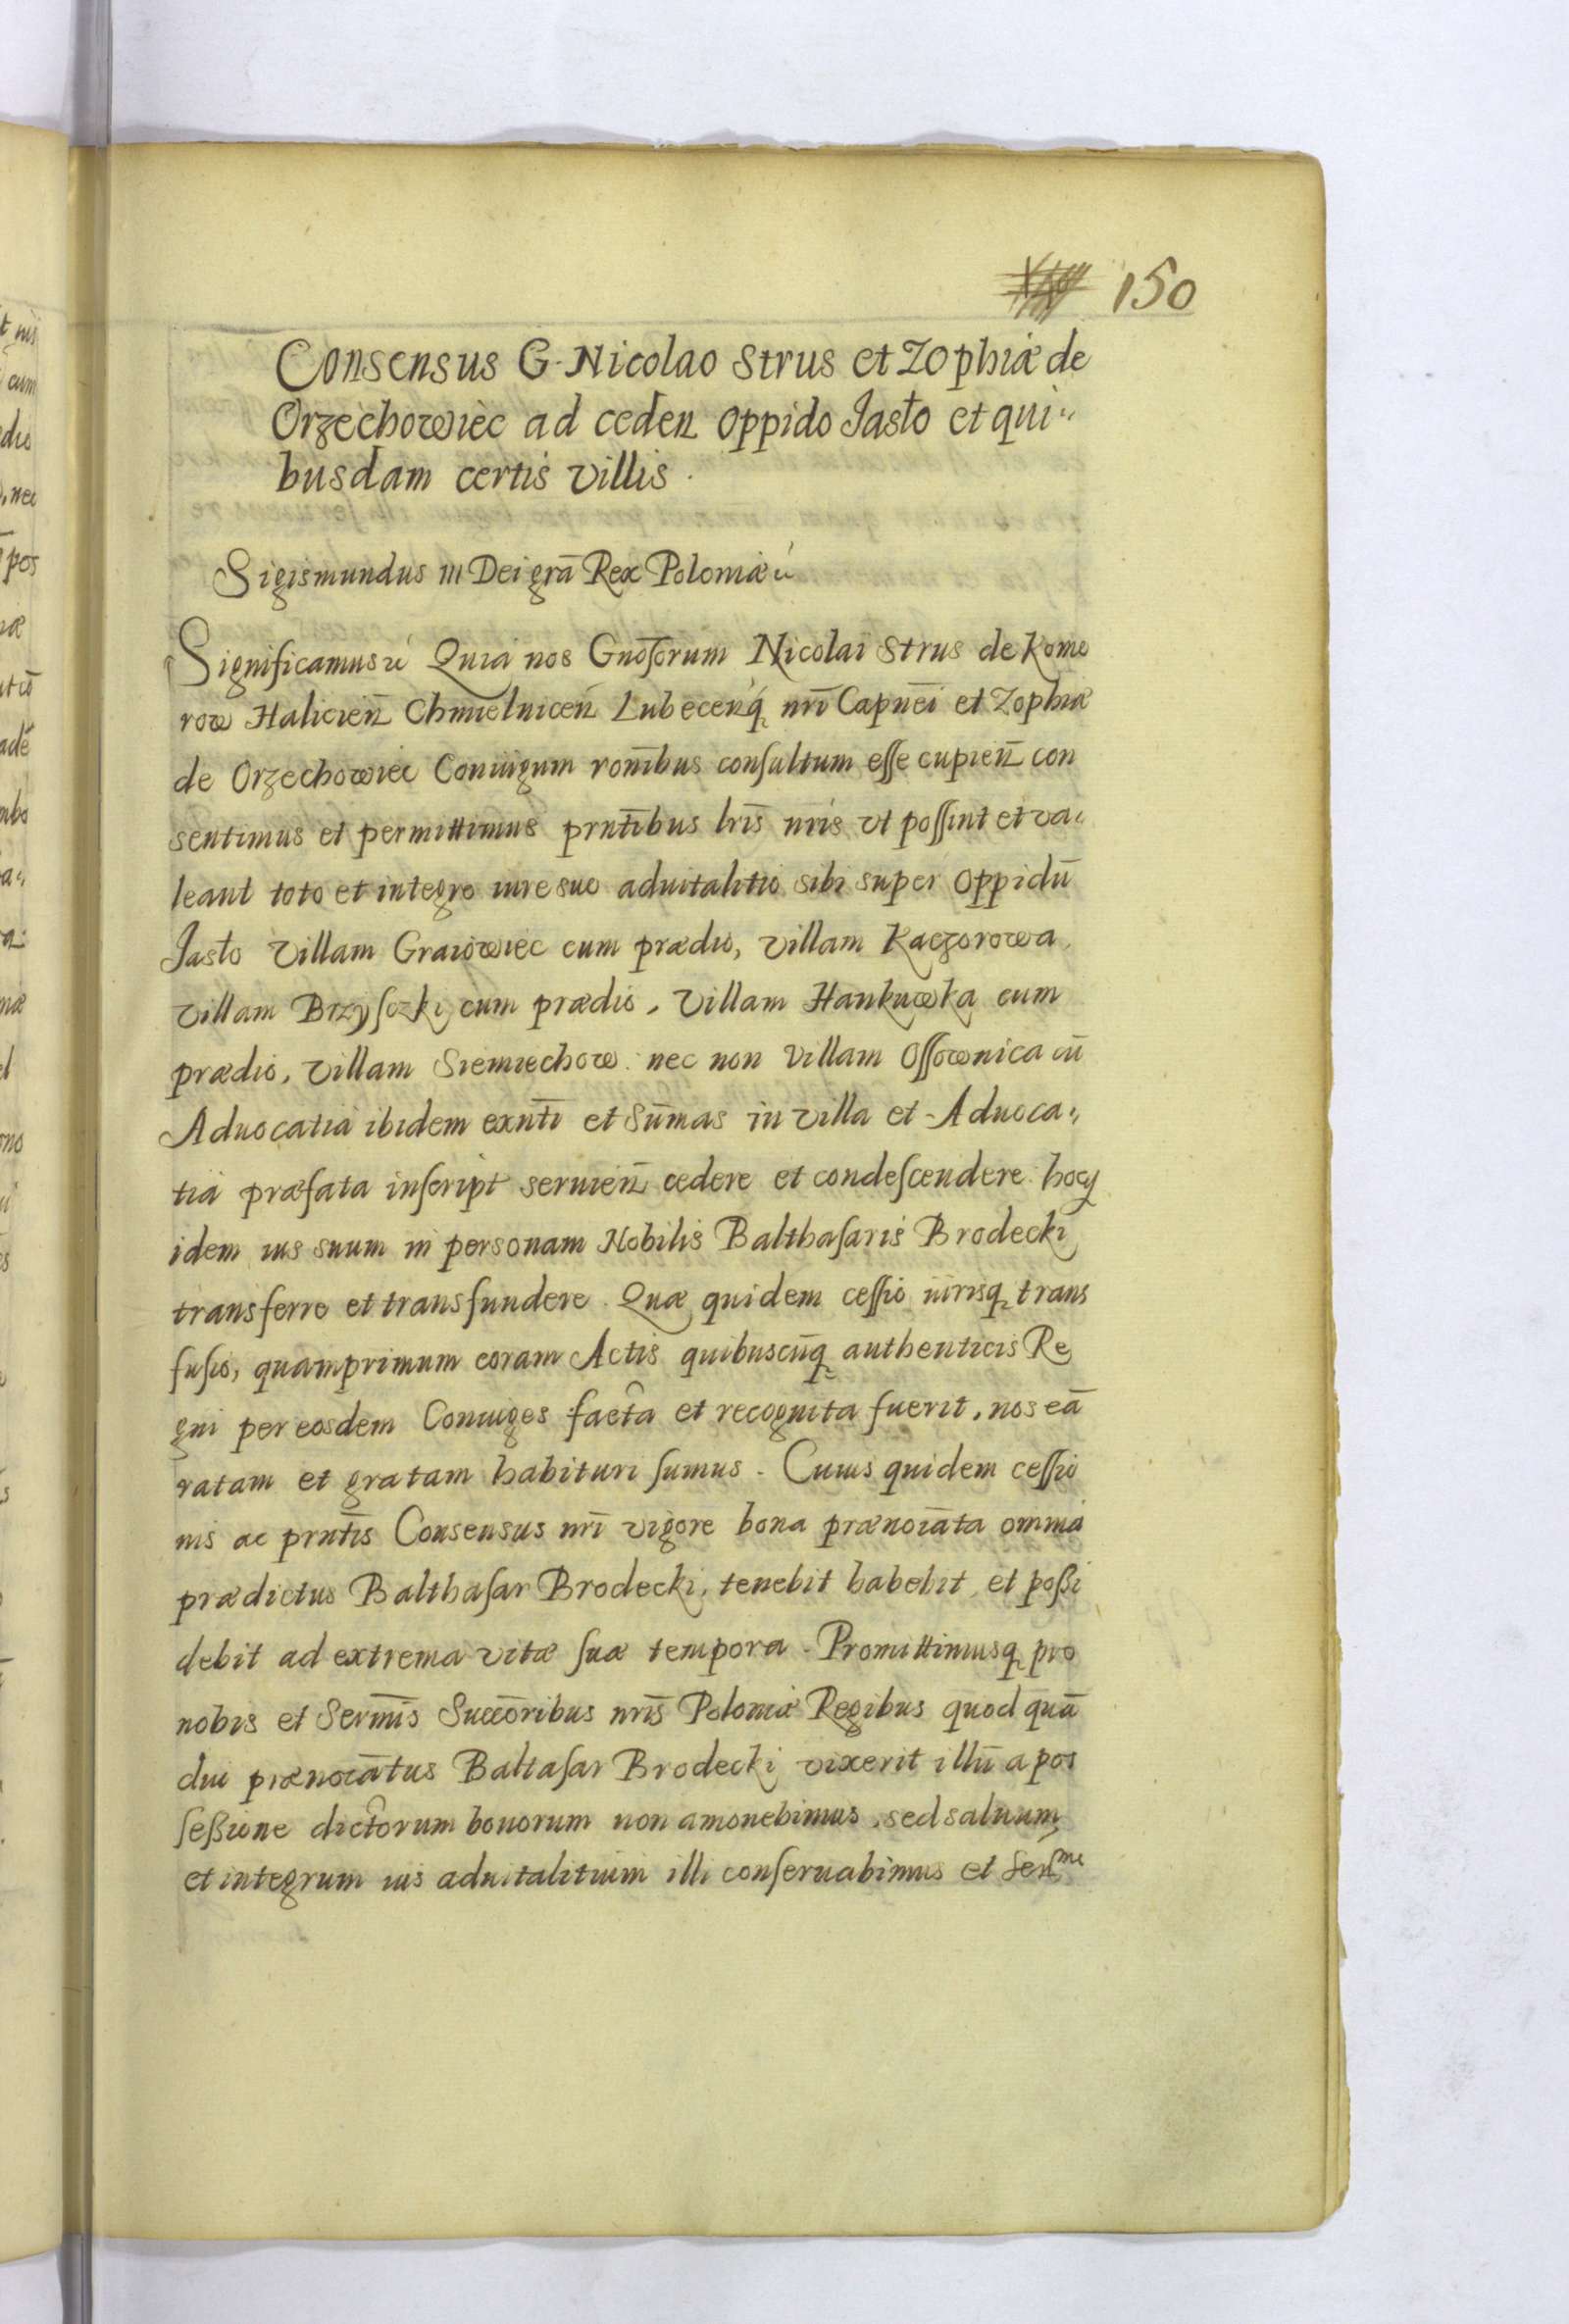 150
Consensus G. Nicolao Strus et Zophiæ de
Orzechowiec ad ceden̄ oppido Jasło et qui„
busdam certis villis.
Sigismundus III Dei grā Rex Poloniæ
Significamus Quia nos Gnosorum Nicolai Strus de Komo
row Halicien̄ Chmielnicen̄ Lubecen̄q nrī Capnēi et Zophiæ
de Orzechowiec Coniugum ronībus consultum esse cupien̄ con
sentimus et permittimus prntībus lrīs nrīs ut possint et va„
leant toto et integro iure suo aduitalitio sibi super Oppidū
Jasło Villam Graiowiec cum prædio, villam Kaczorowa,
villam Brzysczki cum prædio, Villam Hankuwka cum
prædio, villam Siemiechow nec non villam Ossownica cū
Aduocatia ibidem exnt̄i et Sūmas in villa et Aduoca„
tia præfata inscript seruien̄ cedere et condescendere hocq
idem ius suum in personam Nobilis Balthasaris Brodecki
transferre et transfundere. Quæ quidem cessio iurisq trans
fusio, quamprimum coram Actis quibuscūq authenticis Re
gni per eosdem Coniuges facta et recognita fuerit, nos eā
ratam et gratam habituri sumus. Cuius quidem cessio
nis ac prntīs Consensus nrī vigore bona prænoīata omnia
prædictus Balthasar Brodecki, tenebit habebit et possi
debit ad extrema vitæ suæ tempora. Promittimusq pro
nobis et Sermīs Succōribus nrīs Poloniæ Regibus quod quā
diu prænoīatus Baltasar Brodecki vixerit illū a pos
sessione dictorum bonorum non amouebimus, sed saluum
et integrum ius aduitalitium illi conseruabimus et Serᵐⁱ